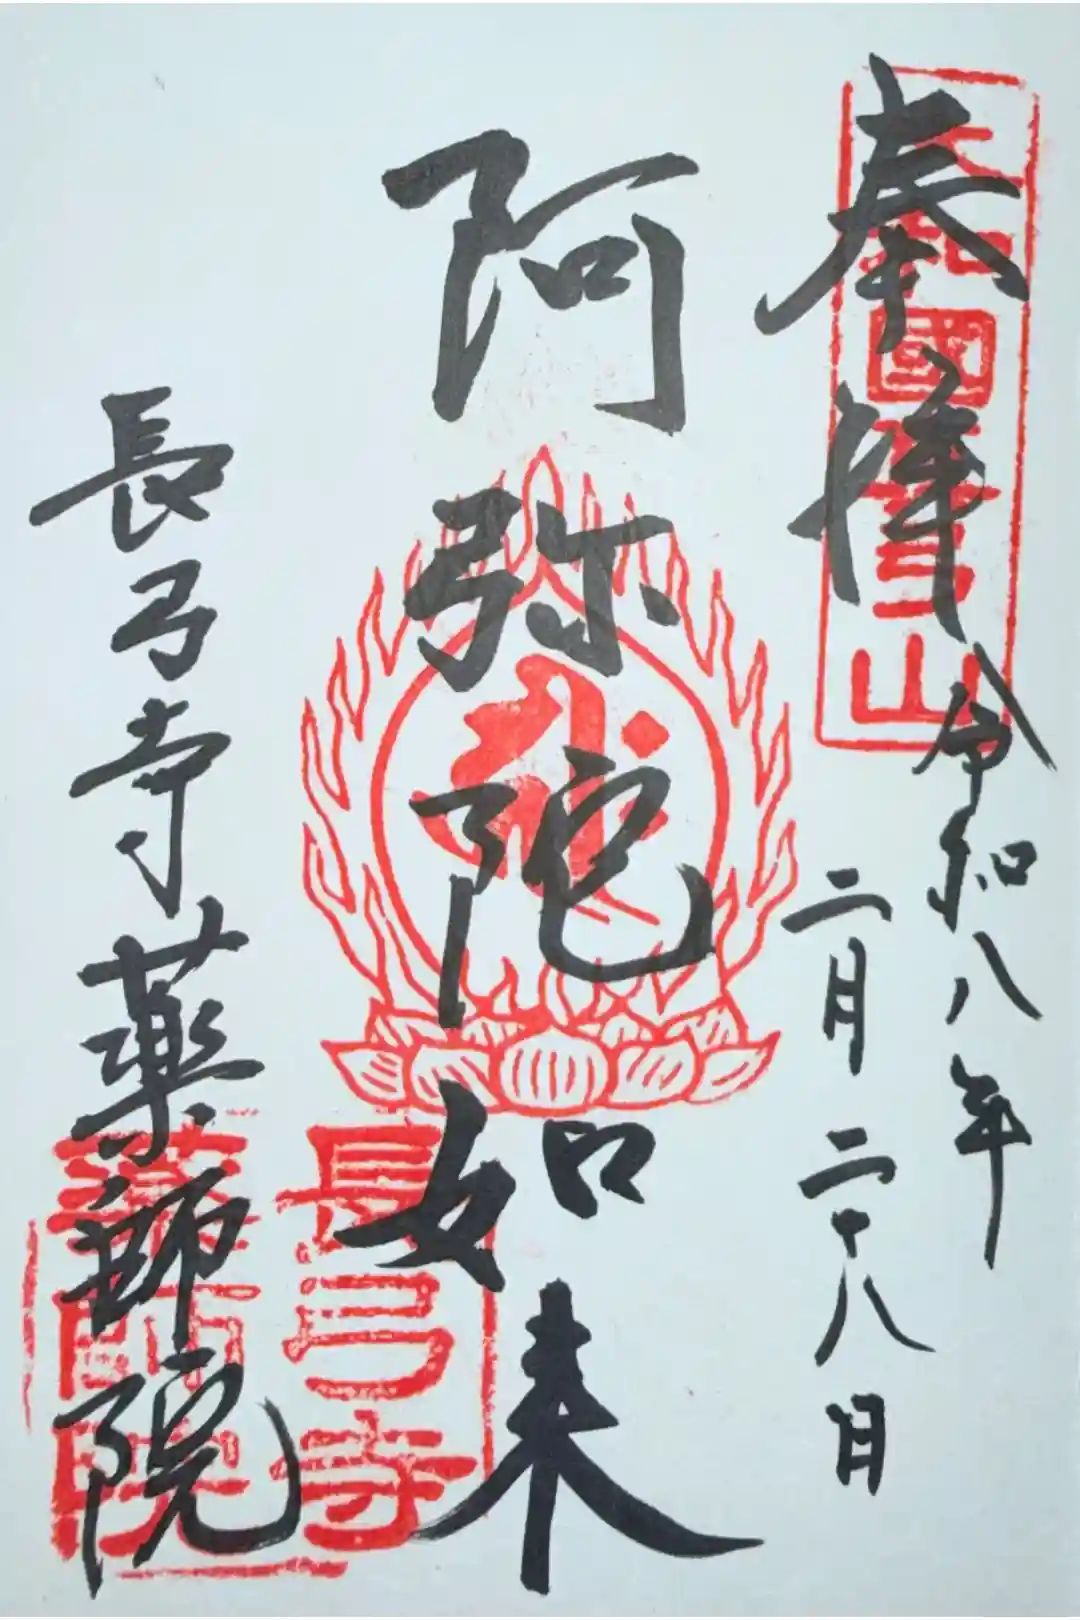 奉拝
大和國弓山
令和八年
二月二十八日
阿弥陀如来
長弓寺薬師院
長弓寺
師院